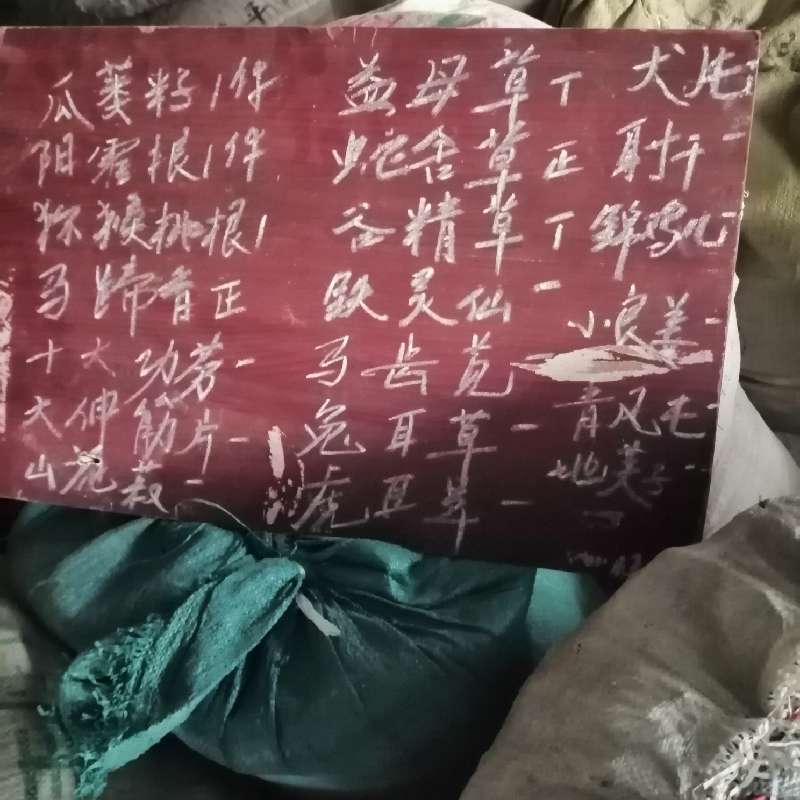 瓜蒌籽1件
阳雷根1件
猕猴桃根1
马蹄香正
十大功劳一
大伸筋片一
山花菽一
益母草丅
蛇舍草正
谷精草丅
铁灵仙一
马齿苋一
兔耳草一
虎耳草一
犬
射干一
锦鸡儿一
小良姜一
青风